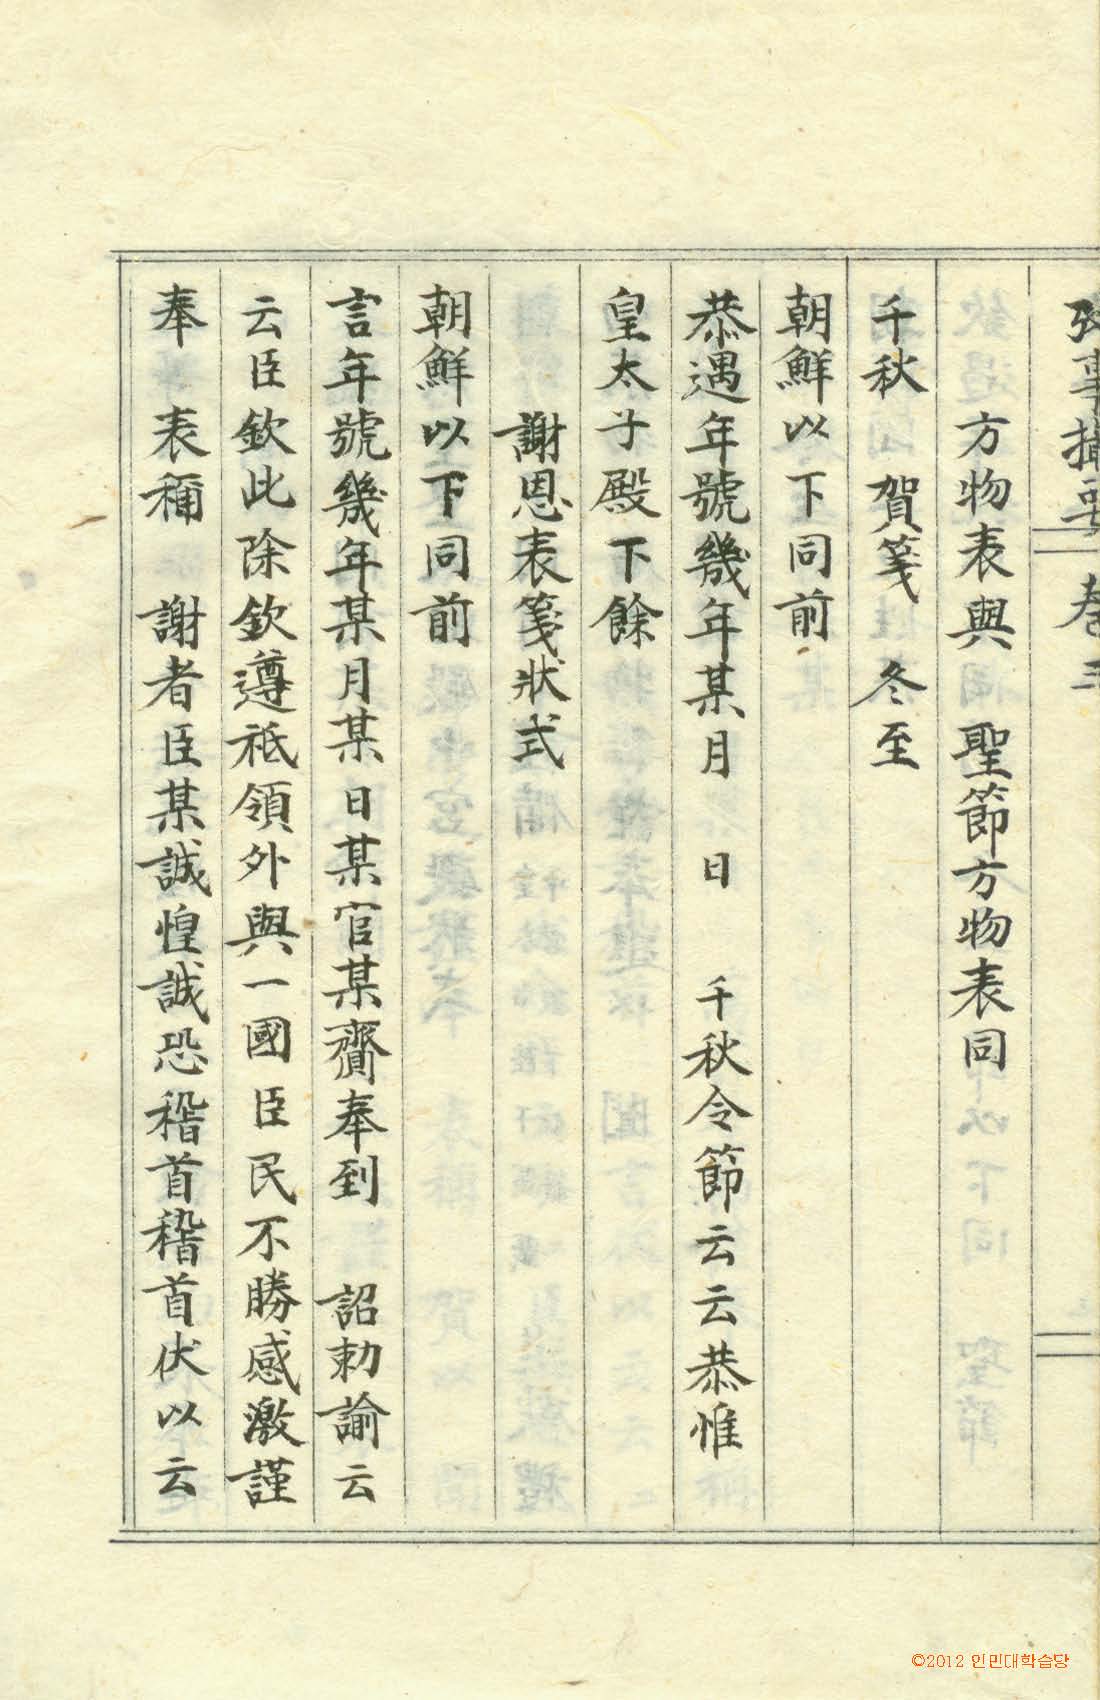 攷事撮要 卷三
方物表與 聖節方物表同
千秋 賀箋 冬至
朝鮮以下同前
恭遇年號幾年某月 日 千秋令節云云恭惟
皇太子殿下餘
謝恩表箋狀式
朝鮮以下同前
言年號幾年某月某日某官某齎奉到 詔勅諭云
云臣欽此除欽遵祗領外與一國臣民不勝感激謹
奉 表稱 謝者臣某誠惶誠恐稽首稽首伏以云
©2012 인민대학습당